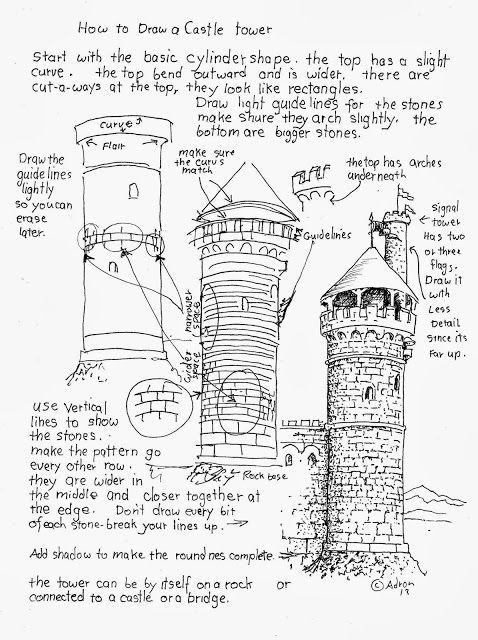 How to Draw a Castle tower
Start with the basic cylinder shape. the top has a slight
curve. the top bend outward and is wider. there are
cut-a-ways at the top, they look like rectangles.
Draw light guide lines for the stones
make shure they arch slightly. the
bottom are bigger stones.
Curve
Flair
Draw the
guide lines
lightly
so you can
erase
later.
make sure
the curvs
match
the top has arches
underneath
Guidelines
Signal
tower
Has two
or three
flags.
Draw it
with
Less
Detail
since its
Far up.
narrower
space
wider
space
use vertical
lines to show
the stones.
make the pattern go
every other row.
they are wider in
the middle and closer together at
the edge. Don't draw every bit
of each stone-break your lines up.
Rock base
Add shadow to make the roundnes complete.
the tower can be by itself on a rock or
connected to a castle or a bridge.
© Adron
13